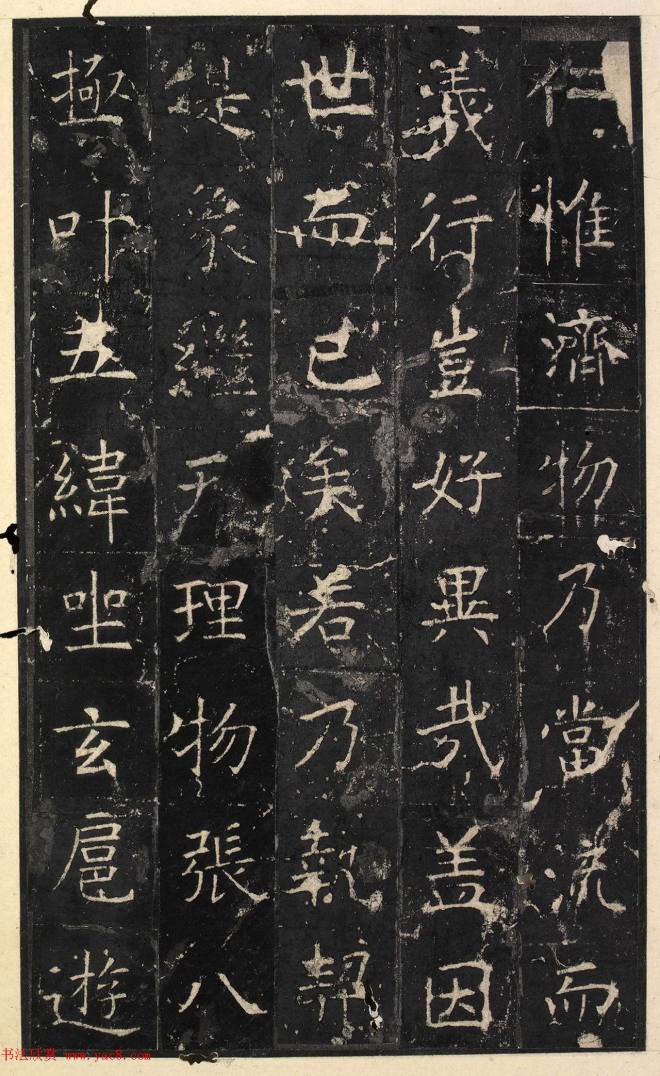 仁惟濟物乃當流而
義行豈好異哉盖因
世而已矣若乃執契
徒象繼天理物張八
極叶五緯坐玄扈遊
书法欣赏 www.yac8.com